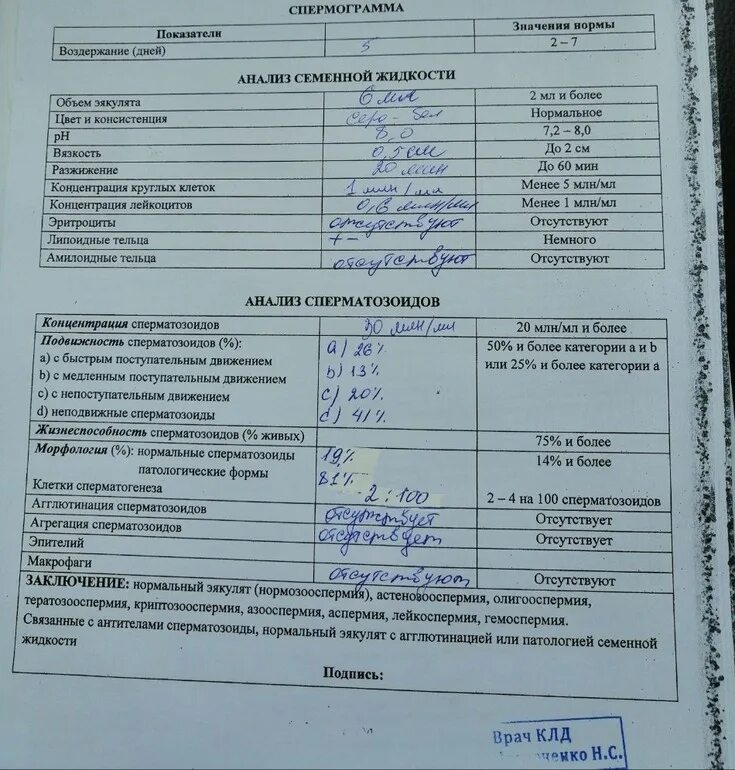 СПЕРМОГРАММА
Показатели Значения нормы
Воздержание (дней) 5 2 – 7
АНАЛИЗ СЕМЕННОЙ ЖИДКОСТИ
Объем эякулята 6 мл 2 мл и более
Цвет и консистенция серо-бел Нормальное
pH 8,0 7,2 – 8,0
Вязкость 0,5 см До 2 см
Разжижение 20 мин До 60 мин
Концентрация круглых клеток 1 млн/мл Менее 5 млн/мл
Концентрация лейкоцитов 0,6 млн/мл Менее 1 млн/мл
Эритроциты отсутствуют Отсутствуют
Липоидные тельца + – Немного
Амилоидные тельца отсутствуют Отсутствуют
АНАЛИЗ СПЕРМАТОЗОИДОВ
Концентрация сперматозоидов млн/мл 20 млн/мл и более
Подвижность сперматозоидов (%): 50% и более категории a и b
a) с быстрым поступательным движением a) 26% или 25% и более категории a
b) с медленным поступательным движением b) 13%
c) с непоступательным движением c) 20%
d) неподвижные сперматозоиды d) 41%
Жизнеспособность сперматозоидов (% живых) 75% и более
Морфология (%): нормальные сперматозоиды 19% 14% и более
патологические формы 81%
Клетки сперматогенеза 2 : 100 2 – 4 на 100 сперматозоидов
Агглютинация сперматозоидов отсутствует Отсутствует
Агрегация сперматозоидов отсутствует Отсутствует
Эпителий
Макрофаги отсутствуют Отсутствуют
ЗАКЛЮЧЕНИЕ: нормальный эякулят (нормозооспермия), астенозооспермия, олигооспермия,
тератозооспермия, криптозооспермия, азооспермия, аспермия, лейкоспермия, гемоспермия.
Связанные с антителами сперматозоиды, нормальный эякулят с агглютинацией или патологией семенной
жидкости
Подпись:
Врач КЛД
Н.С.